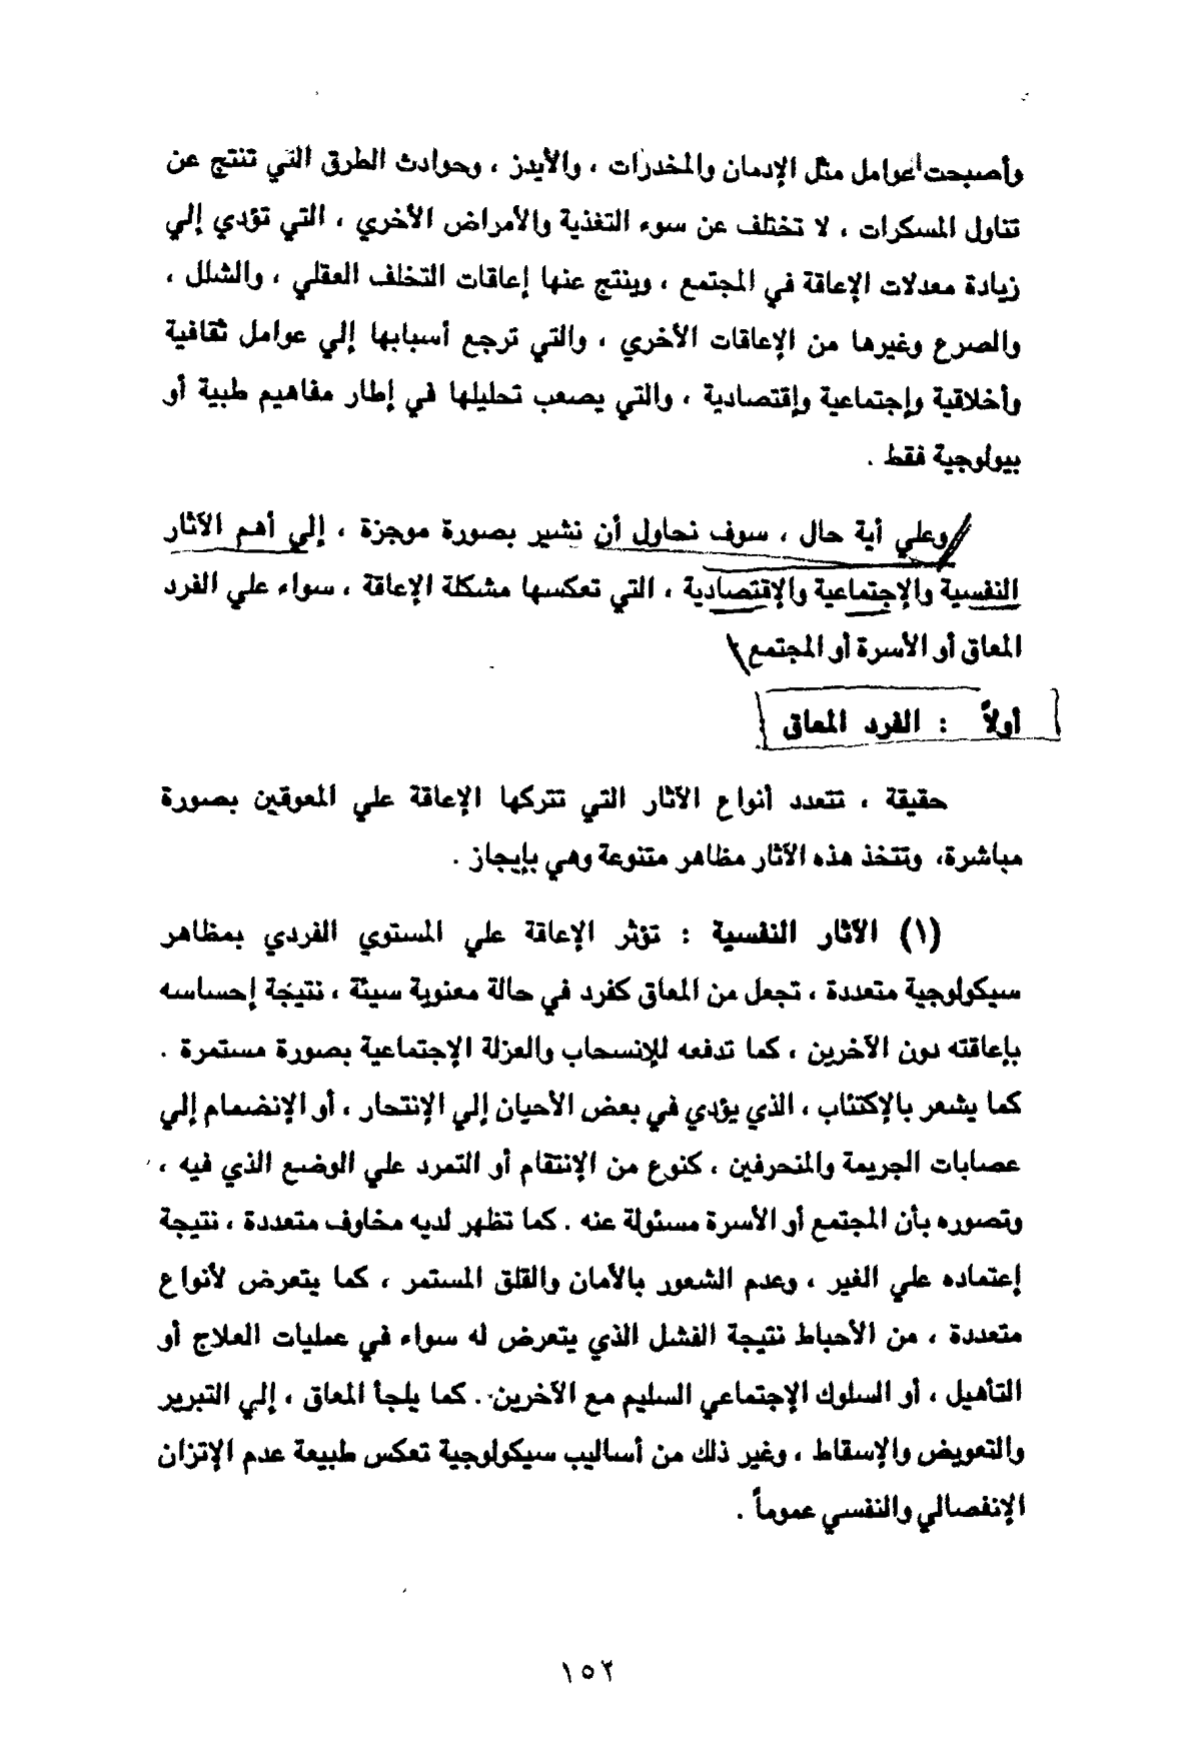 وأصبحت عوامل مثل الإدمان والمخدرات ، والأيدز ، وحوادث الطرق التي تنتج عن
تناول المسكرات ، لا تختلف عن سوء التغذية والأمراض الأخري ، التي تؤدي إلي
زيادة معدلات الإعاقة في المجتمع ، وينتج عنها إعاقات التخلف العقلي ، والشلل ،
والصرع وغيرها من الإعاقات الأخري ، والتي ترجع أسبابها إلي عوامل ثقافية
وأخلاقية وإجتماعية وإقتصادية ، والتي يصعب تحليلها في إطار مفاهيم طبية أو
بيولوجية فقط .
وعلي أية حال ، سوف نحاول أن نشير بصورة موجزة ، إلي أهم الآثار
النفسية والإجتماعية والإقتصادية ، التي تعكسها مشكلة الإعاقة ، سواء علي الفرد
المعاق أو الأسرة أو المجتمع
أولاً : الفرد المعاق
حقيقة ، تتعدد أنواع الآثار التي تتركها الإعاقة علي المعوقين بصورة
مباشرة، وتتخذ هذه الآثار مظاهر متنوعة وهي بإيجاز .
(١) الآثار النفسية : تؤثر الإعاقة علي المستوي الفردي بمظاهر
سيكولوجية متعددة ، تجعل من المعاق كفرد في حالة معنوية سيئة ، نتيجة إحساسه
بإعاقته دون الآخرين ، كما تدفعه للإنسحاب والعزلة الإجتماعية بصورة مستمرة .
كما يشعر بالإكتئاب ، الذي يؤدي في بعض الأحيان إلي الإنتحار ، أو الإنضمام إلي
عصابات الجريمة والمنحرفين ، كنوع من الإنتقام أو التمرد علي الوضع الذي فيه ،
وتصوره بأن المجتمع أو الأسرة مسئولة عنه . كما تظهر لديه مخاوف متعددة ، نتيجة
إعتماده علي الغير ، وعدم الشعور بالأمان والقلق المستمر ، كما يتعرض لأنواع
متعددة ، من الأحباط نتيجة الفشل الذي يتعرض له سواء في عمليات العلاج أو
التأهيل ، أو السلوك الإجتماعي السليم مع الآخرين . كما يلجأ المعاق ، إلي التبرير
والتعويض والإسقاط ، وغير ذلك من أساليب سيكولوجية تعكس طبيعة عدم الإتزان
الإنفصالي والنفسي عموماً .
١٥٢